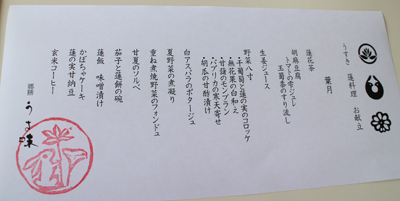 うすき 蓮料理 お献立
葉月
蓮花茶
胡麻豆腐
トマトの雫ジュレ
玉蜀黍のすり流し
生姜ジュース
野菜八寸
・干葡萄と蓮の実のコロッケ
・無花果の白和え
・甘藷のモンブラン
・パプリカの寒天寄せ
・胡瓜の甘酢漬け
白アスパラのポタージュ
夏野菜の煮凝り
重ね煮焼野菜のフォンデュ
甘夏のソルベ
茄子と蓮餅の椀
蓮飯 味噌漬け
かぼちゃケーキ
蓮の実甘納豆
玄米コーヒー